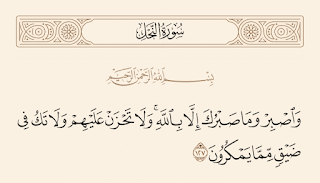 سُورَةُ النَّحْلِ
بِسْمِ اللَّهِ الرَّحْمَٰنِ الرَّحِيمِ
وَٱصْبِرْ وَمَا صَبْرُكَ إِلَّا بِٱللَّهِ ۚ وَلَا تَحْزَنْ عَلَيْهِمْ وَلَا تَكُ فِى
ضَيْقٍ مِّمَّا يَمْكُرُونَ ١٢٧